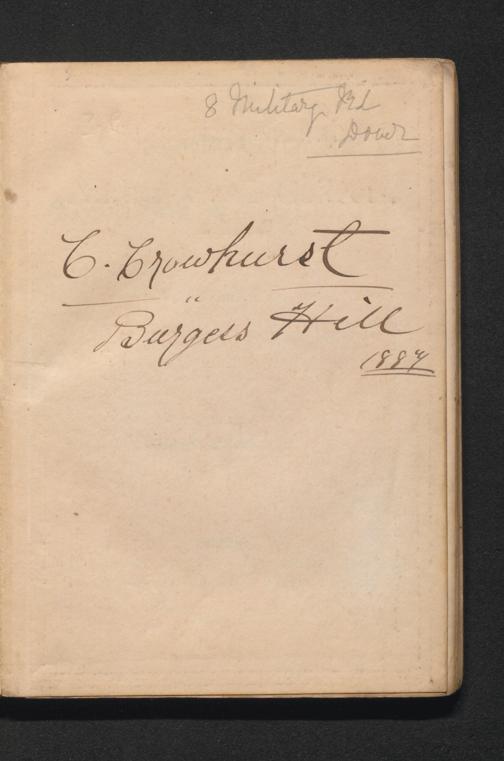 8 Military Rd
Dover
C. Crowhurst
"
Burgess Hill
1887